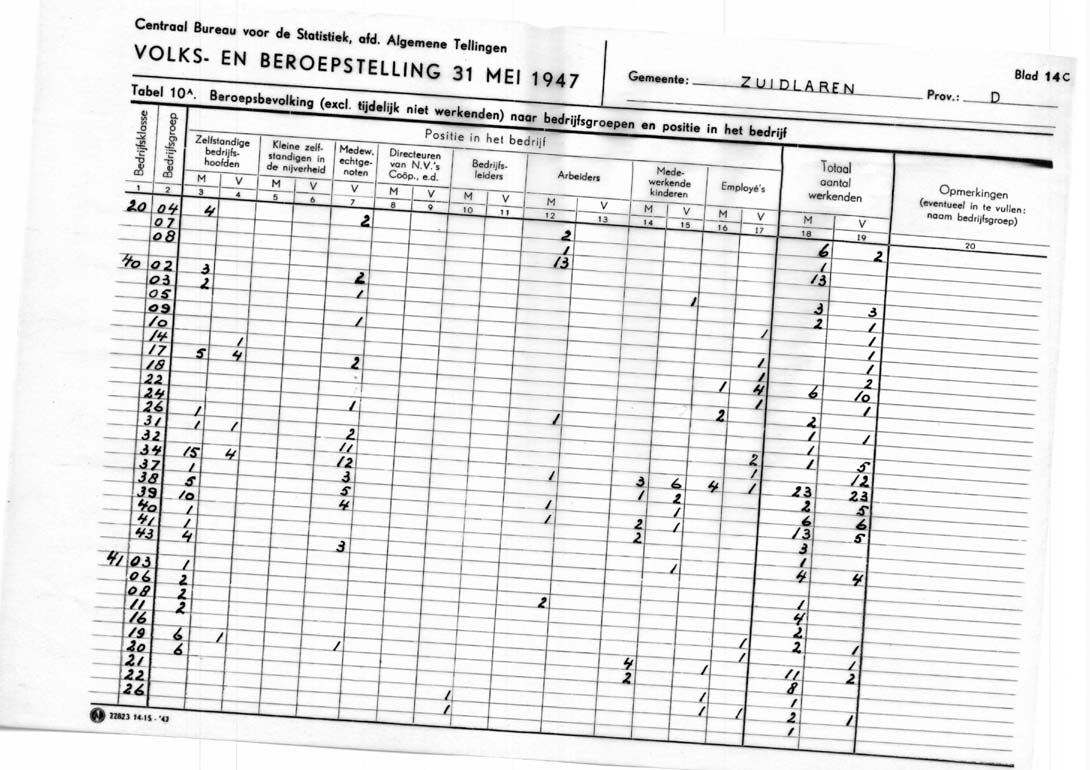 Centraal Bureau voor de Statistiek, afd. Algemene Tellingen
VOLKS- EN BEROEPSTELLING 31 MEI 1947
Gemeente: ZUIDLAREN Prov.: D
Blad 14C
Tabel 10A. Beroepsbevolking (excl. tijdelijk niet werkenden) naar bedrijfsgroepen en positie in het bedrijf
Bedrijfsklasse
Bedrijfsgroep
Positie in het bedrijf
Zelfstandige bedrijfs-hoofden
Kleine zelf-standigen in de nijverheid
Medew. echtge-noten
Directeuren van N.V.'s Coöp., e.d.
Bedrijfs-leiders
Arbeiders
Mede-werkende kinderen
Employé's
Totaal aantal werkenden
Opmerkingen (eventueel in te vullen: naam bedrijfsgroep)
M V M V V M V M V M V M V M V M V
1 2 3 4 5 6 7 8 9 10 11 12 13 14 15 16 17 18 19 20
20 04 4 2 2 6 2
07 1 1
08 13 13
40 02 3 2 1 3 3
03 2 1 2 1
05 1 1
09 1 1
10 1 1
14 1 1 2
17 5 4 2 1 4 6 10
18 1 1
22 2 2
24 1 1 1 1
26 1 1
31 1 1 2 2 1 5
32 11 1 12
34 15 4 12 1 3 6 4 1 23 23
37 1 3 1 2 2 5
38 5 5 1 1 6 6
39 10 4 1 2 1 13 5
40 1 2 3
41 1 1
43 4 3 1 4 4
41 03 1 1
06 2 2 4
08 2 2
11 2 1 2 1
16 1 1
19 6 1 1 4 1 11 2
20 6 2 8
21 1 1
22 1 1 1 2 1
26 1 1
22823 14-15 - '43